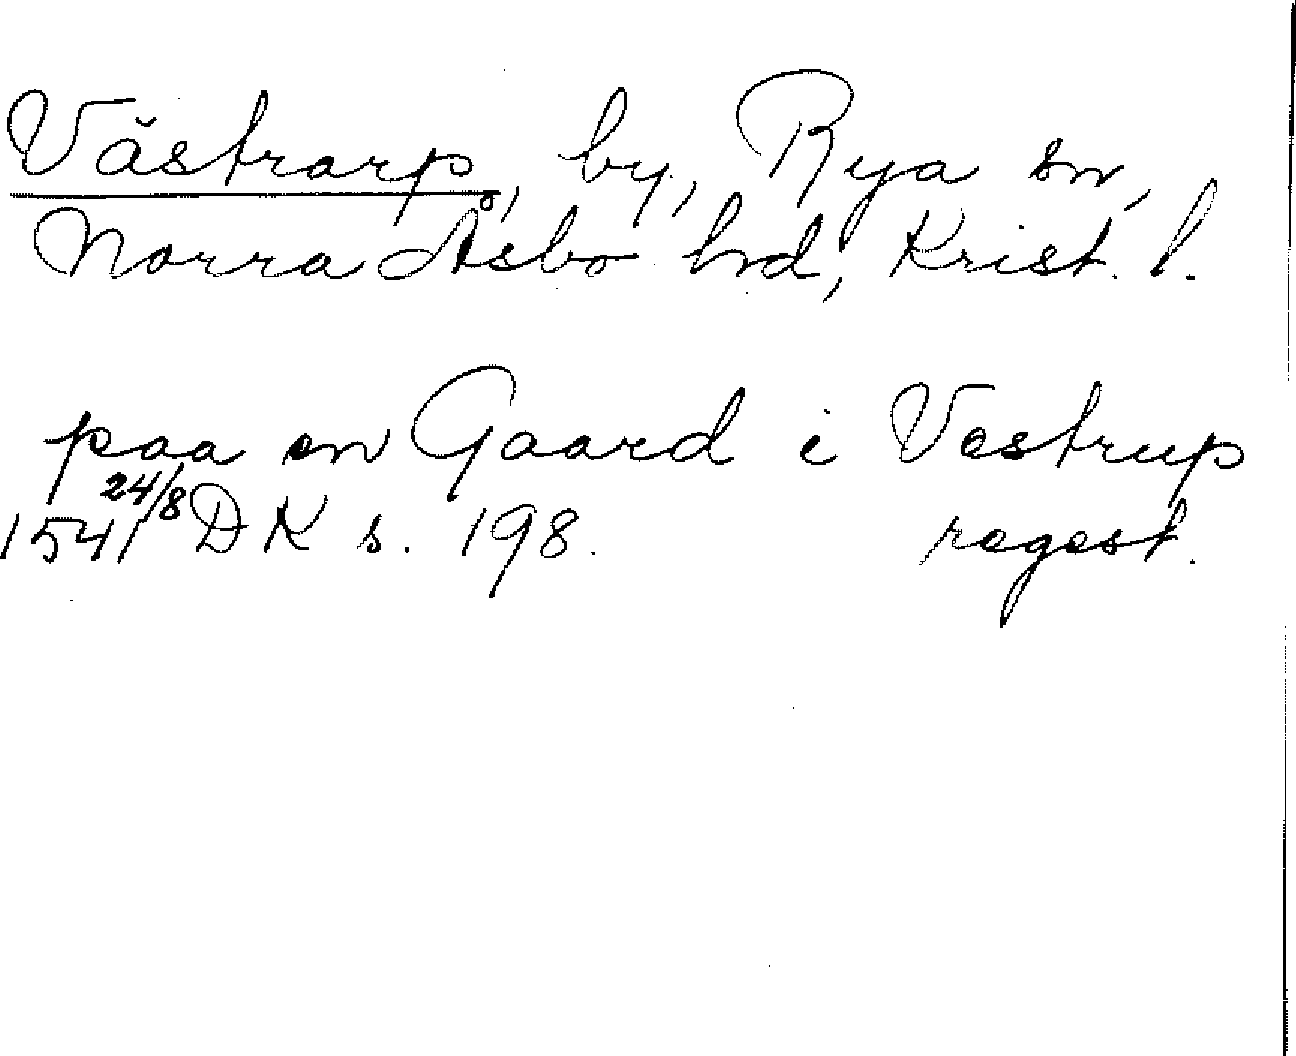 Västrarp, by, Rya sn,
Norra Åsbo hrd, Krist. l.
paa en Gaard i Vestrup
1541 24/8 DK s. 198. regest.